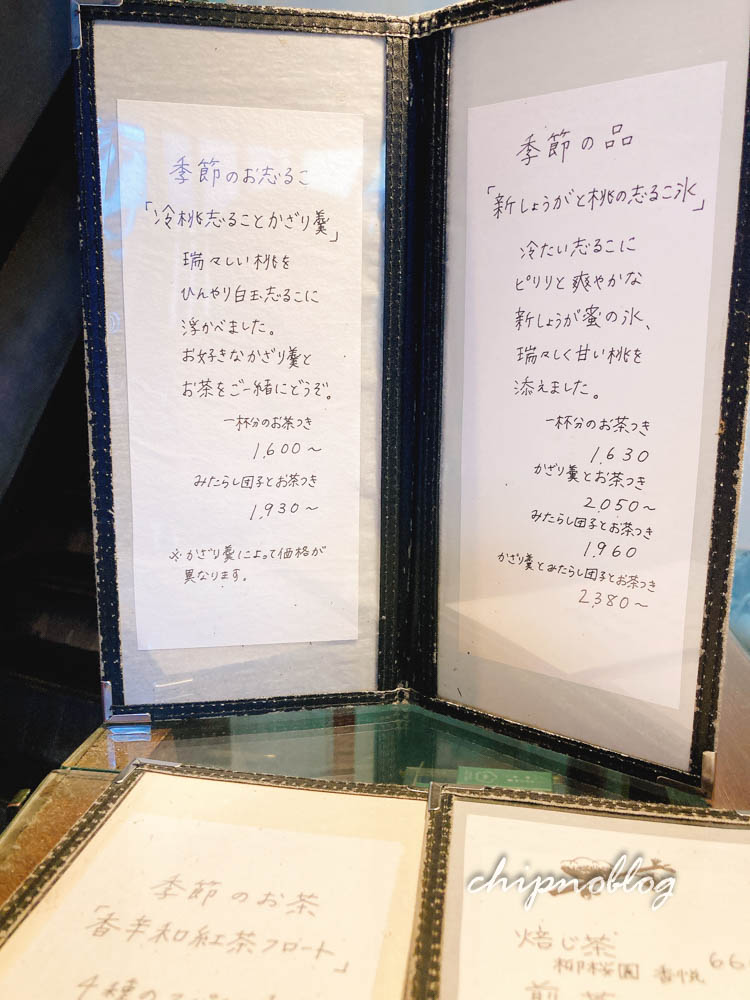 季節のお志るこ
「冷桃志ることかざり羹」
瑞々しい桃を
ひんやり白玉志るこに
浮かべました。
お好きなかざり羹と
お茶をご一緒にどうぞ。
一杯分のお茶つき
1,600～
みたらし団子とお茶つき
1,930～
※かざり羹によって価格が
異なります。
季節の品
「新しょうがと桃の志るこ氷」
冷たい志るこに
ピリリと爽やかな
新しょうが蜜の氷、
瑞々しく甘い桃を
添えました。
一杯分のお茶つき
1,630
かざり羹とお茶つき
2,050～
みたらし団子とお茶つき
1,960
かざり羹とみたらし団子とお茶つき
2,380～
季節のお茶
「香辛和紅茶フロート」
4種の
chipnoblog
焙じ茶
柳桜園 香悦
煎茶